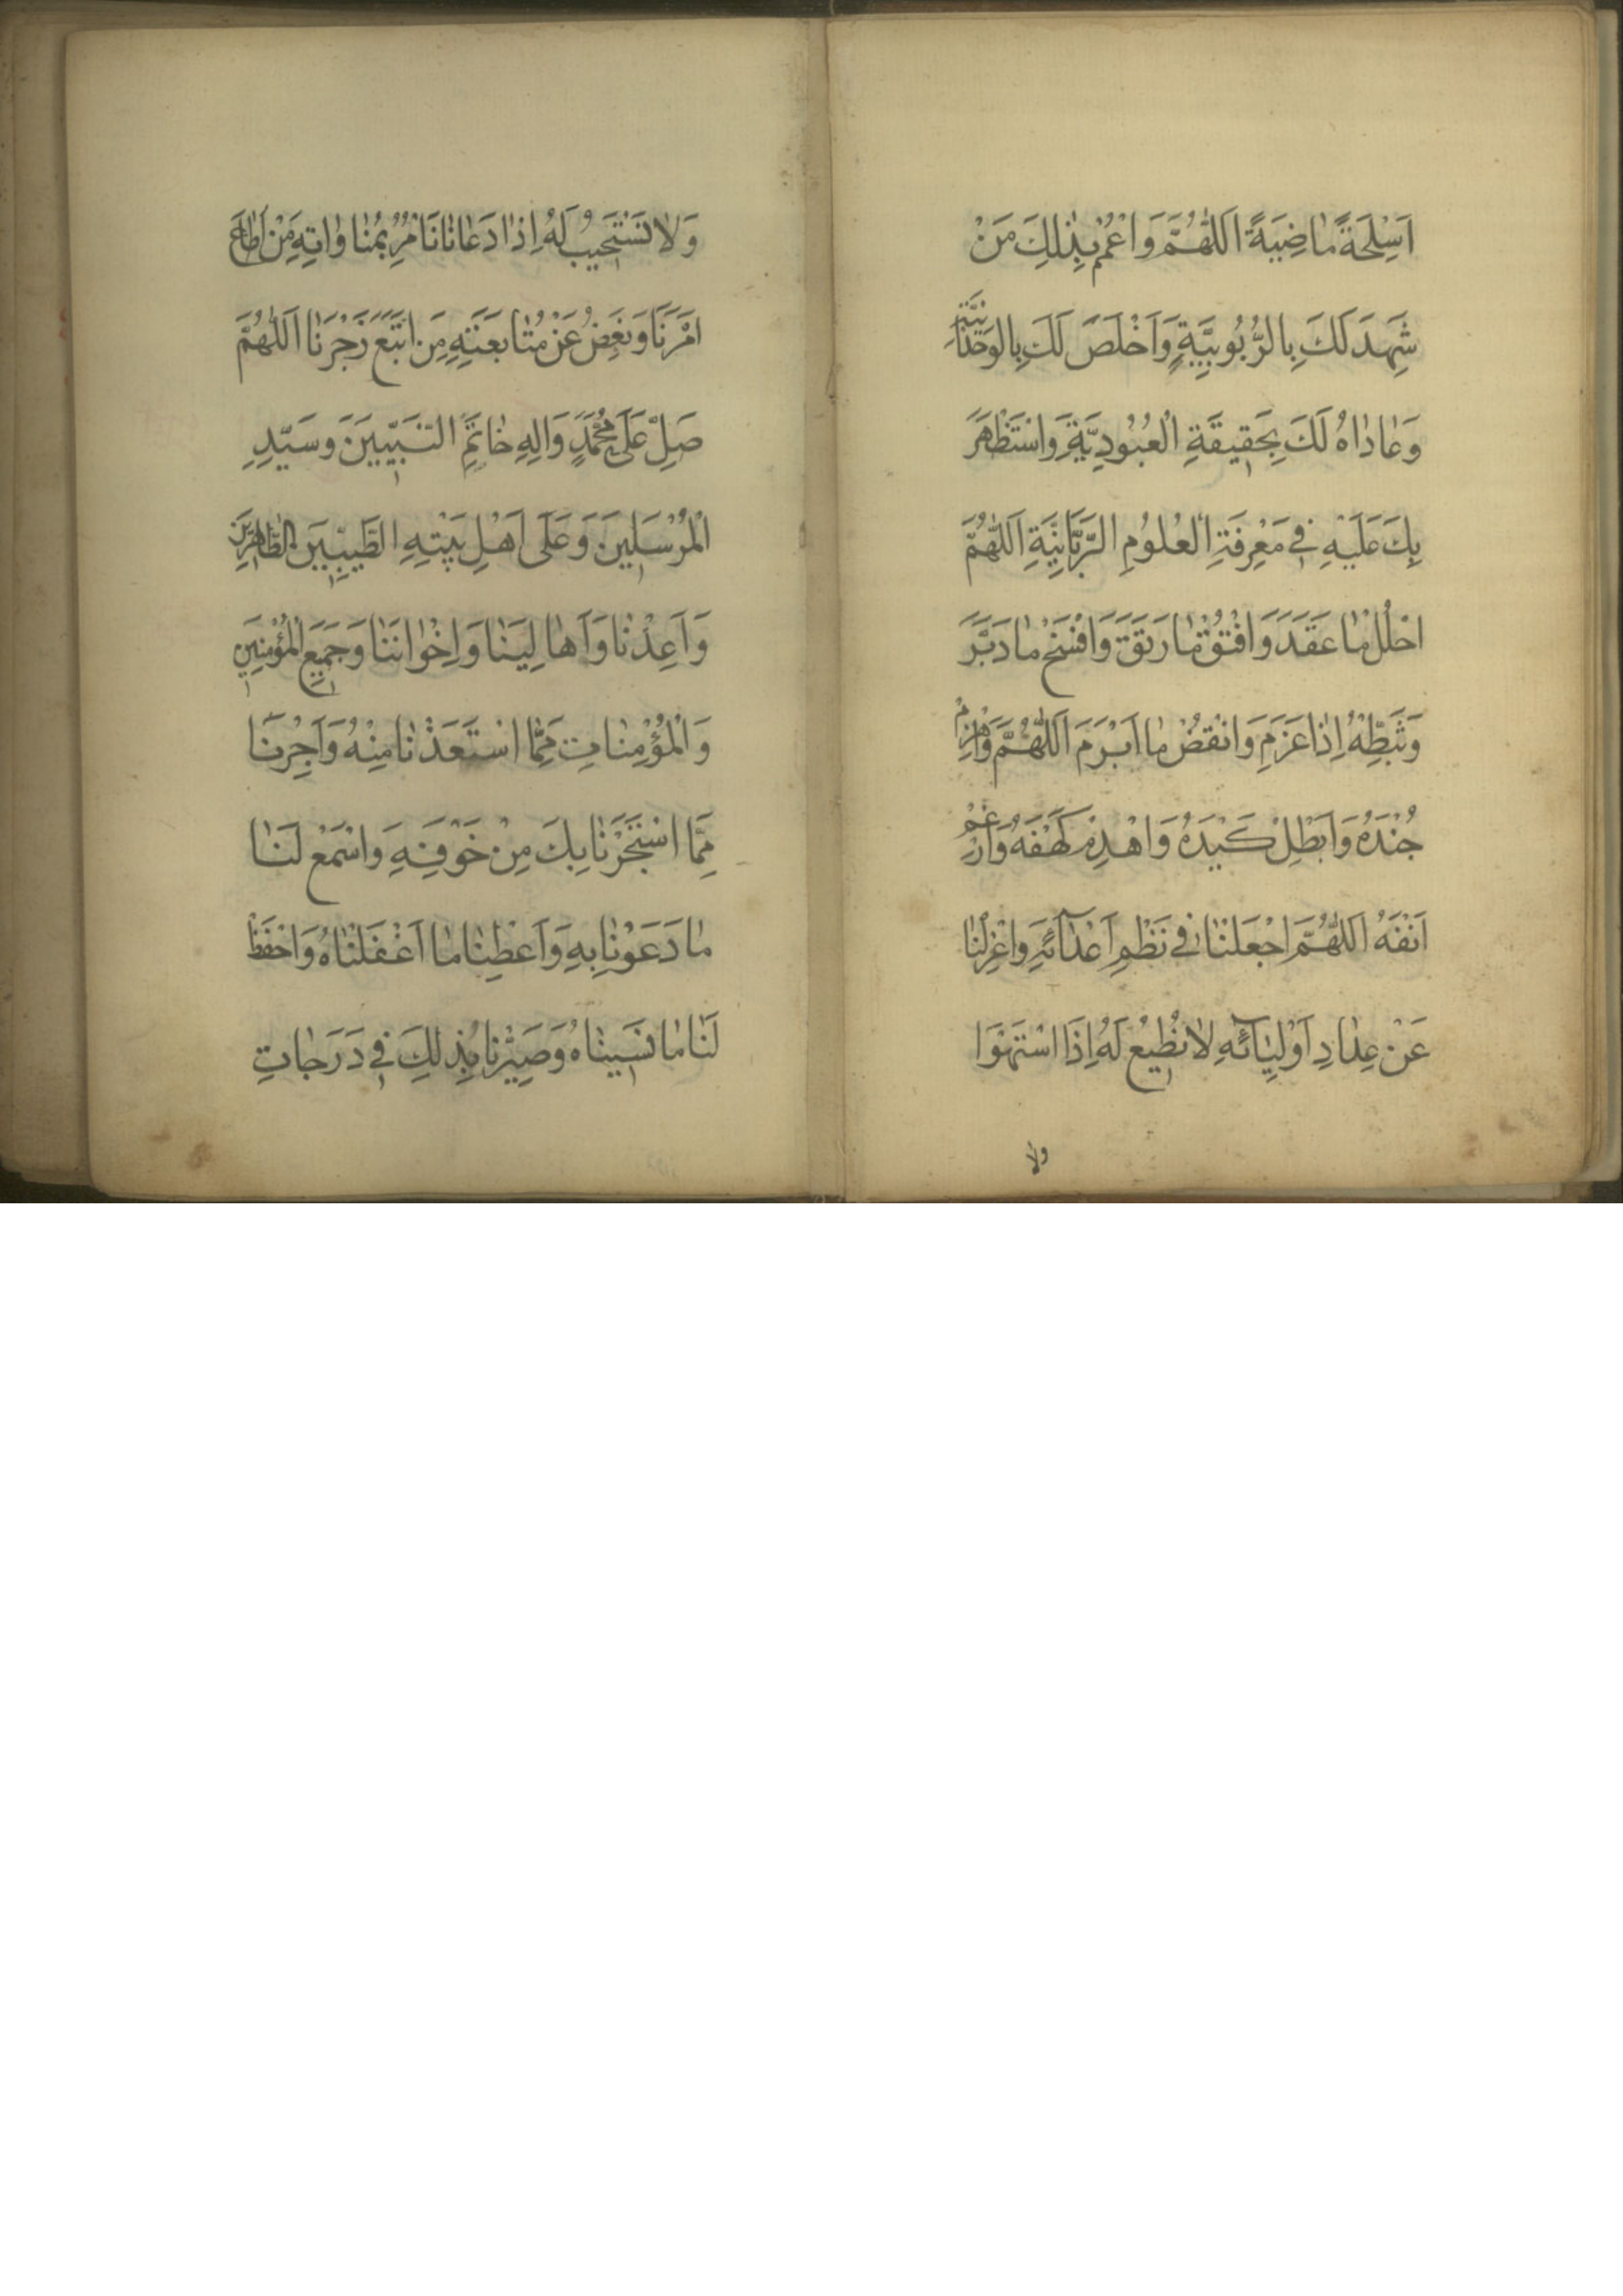 اَسْلِحَةً مٰاضِيَةً اَللّٰهُمَّ وَاعْمُمْ بِذٰلِكَ مَنْ
شَهِدَ لَكَ بِالرُّبُوبِيَّةِ وَاَخْلَصَ لَكَ بِالوَحْدٰانِيَّةِ
وَعٰادٰاهُ لَكَ بِحَقِيقَةِ الْعُبُودِيَّةِ وَاسْتَظْهَرَ
بِكَ عَلَيْهِ فِي مَعْرِفَةِ الْعُلُومِ الرَّبّٰانِيَّةِ اَللّٰهُمَّ
احْلُلْ مٰا عَقَدَ وَافْتُقْ مٰا رَتَقَ وَافْسَخْ مٰا دَبَّرَ
وَثَبِّطْهُ اِذٰا عَزَمَ وَانْقُضْ مٰا اَبْرَمَ اَللّٰهُمَّ وَاهْزِمْ
جُنْدَهُ وَاَبْطِلْ كَيْدَهُ وَاهْدِمْ كَهْفَهُ وَاَرْغِمْ
اَنْفَهُ اَللّٰهُمَّ اجْعَلْنٰا فِي نَظْمِ اَعْدٰآئِهِ وَاعْزِلْنٰا
عَنْ عِدٰادِ اَوْلِيٰآئِهِ لٰا نُطِيعُ لَهُ اِذَا اسْتَهْوَا
ولا
وَلٰا نَسْتَجِيبُ لَهُ اِذٰا دَعٰانٰا نَأْمُرُ بِمُنٰاوٰاتِهِ مَنْ اَطٰاعَ
اَمْرَنٰا وَنَعِضُ عَنْ مُتٰابَعَتِهِ مَنِ اتَّبَعَ زَجْرَنٰا اَللّٰهُمَّ
صَلِّ عَلَى مُحَمَّدٍ وَاٰلِهِ خٰاتَمِ النَّبِيِّينَ وسَيِّدِ
الْمُرْسَلِينَ وَعَلَى اَهْلِ بَيْتِهِ الطَّيِّبِينَ الطّٰاهِرِينَ
وَاَعِذْنٰا وَاَهٰالِيَنٰا وَاِخْوٰانَنٰا وَجَمِيعَ الْمُؤْمِنِينَ
وَالْمُؤْمِنٰاتِ مِمَّا اسْتَعَذْنٰا مِنْهُ وَاَجِرْنٰا
مِمَّا اسْتَجَرْنٰا بِكَ مِنْ خَوْفِهِ وَاسْمَعْ لَنٰا
مٰا دَعَوْنٰا بِهِ وَاَعْطِنٰا مٰا اَغْفَلْنٰاهُ وَاحْفَظْ
لَنٰا مٰا نَسِينٰاهُ وَصَيِّرْنٰا بِذٰلِكَ فِي دَرَجٰاتِ